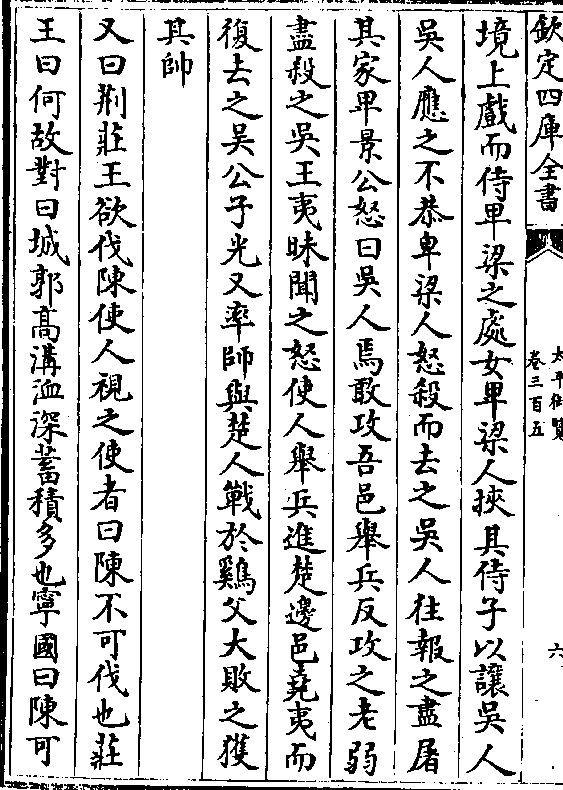 欽定四庫全書
太平御覽
卷三百五
六
境上戲而侍卑梁之處女卑梁人挾其侍子以讓吳人
吳人應之不恭卑梁人怒殺而去之吳人往報之盡屠
其家卑景公怒曰吳人焉敢攻吾邑舉兵反攻之老弱
盡殺之吳王夷昧聞之怒使人舉兵進楚邊邑堯夷而
復去之吳公子光又率師與楚人戰於鷄父大敗之獲
其帥
又曰荆莊王欲伐陳使人視之使者曰陳不可伐也莊
王曰何故對曰城郭高溝洫深蓄積多也寧國曰陳可